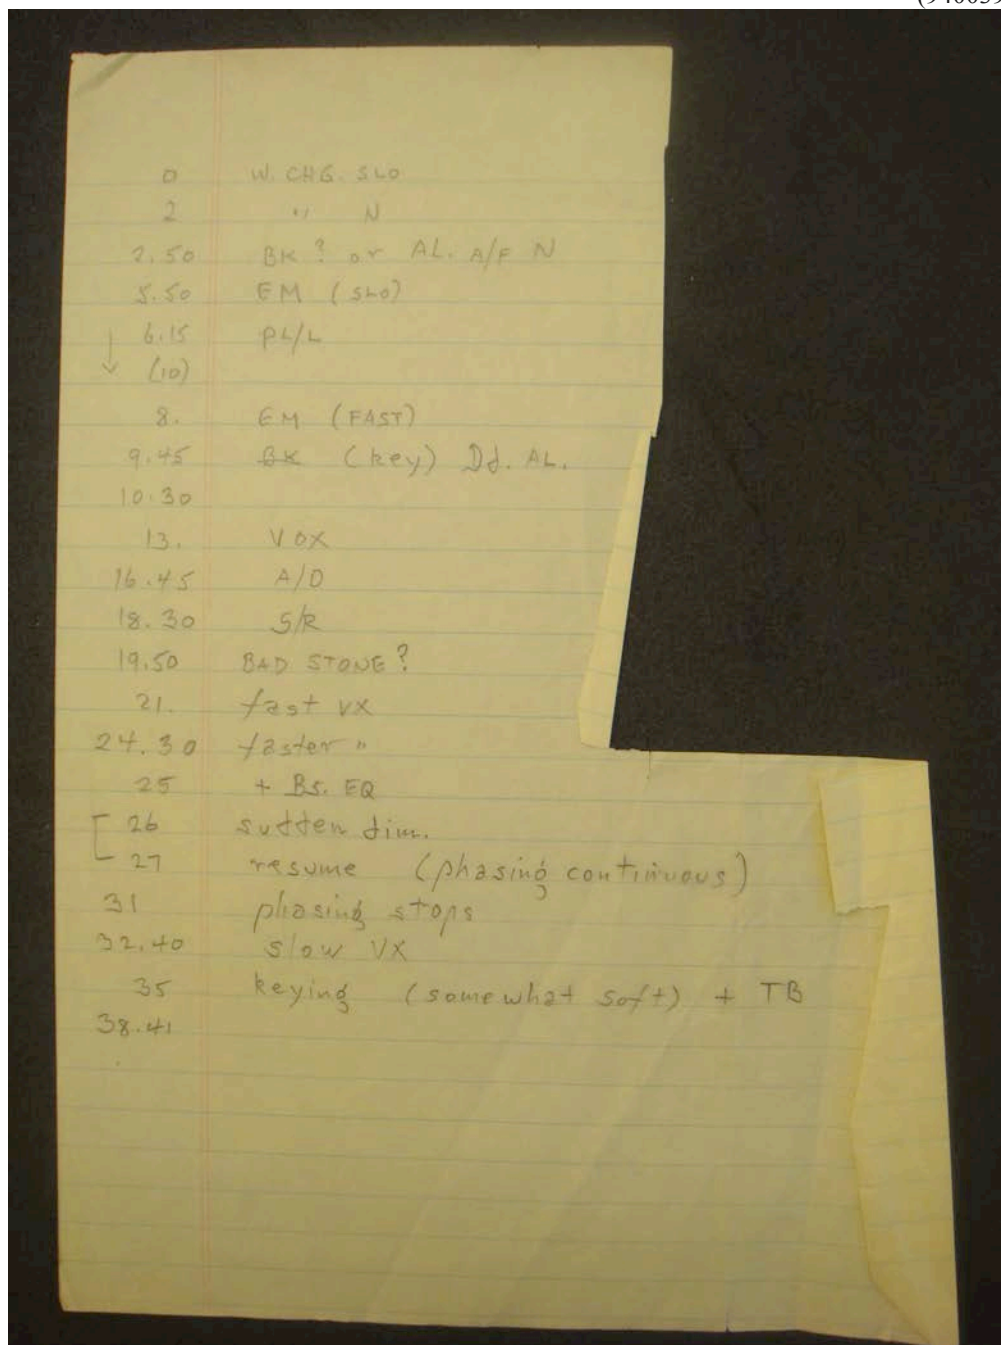 0 W. CHG. SLO
2 " N
2.50 BK ? or AL. A/F N
5.50 EM (SLO)
↓ 6.15 PL/L
(10)
8. EM (FAST)
9.45 BK (key) Dd. AL.
10.30
13. VOX
16.45 A/D
18.30 S/R
19.50 BAD STONE ?
21. fast VX
24.30 faster "
25 + Bs. EQ
26 sudden dim.
27 resume (phasing continuous)
31 phasing stops
32.40 slow VX
35 keying (somewhat soft) + TB
38.41